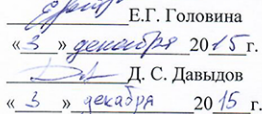 Е.Г. Головина
«3» декабря 2015г.
Д. С. Давыдов
«3» декабря 2015 г.